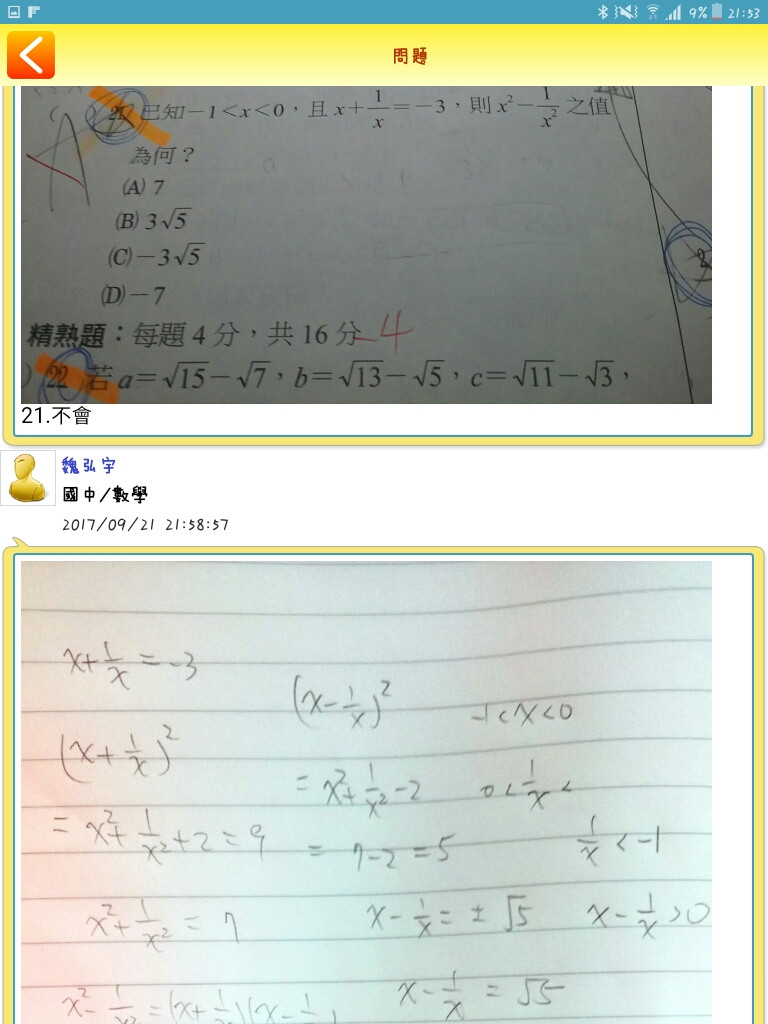 9% 21:53
問題
21. 已知-1<x<0,且 x+1/x=-3,則 x²-1/x² 之值
為何?
(A) 7
(B) 3√5
(C) -3√5
(D) -7
精熟題:每題 4 分,共 16 分 -4
22 若 a=√15-√7,b=√13-√5,c=√11-√3,
21.不會
魏弘宇
國中/數學
2017/09/21 21:58:57
x+1/x=-3
(x+1/x)²
=x²+1/x²+2=9
x²+1/x²=7
x²-1/x²=(x+1/x)(x-1/x)
(x-1/x)²
=x²+1/x²-2
=7-2=5
x-1/x=±√5
x-1/x=√5
-1<x<0
0<1/x<
1/x<-1
x-1/x>0